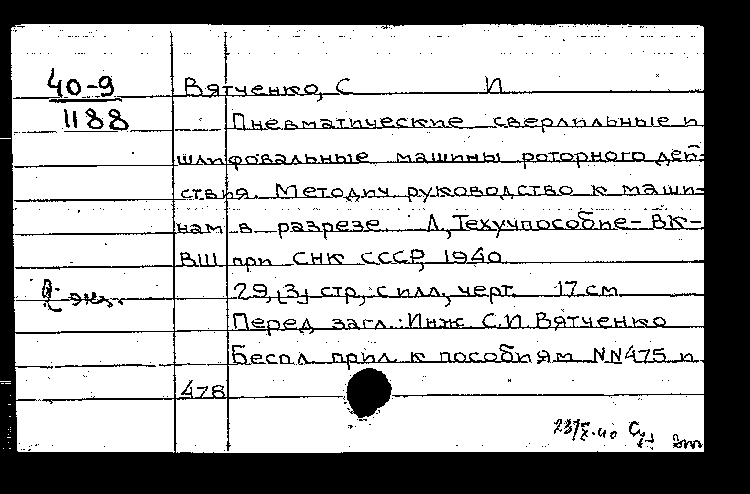 40-9
1188
Вятченко, С И
Пневматические сверлильные и
шлифовальные машины роторного дей-
ствия. Методич. руководство к маши-
нам в разрезе. Л., Техучпособие-ВК-
ВШ при СНК СССР, 1940.
29, [3] стр., с илл., черт. 17 см.
Перед загл.: Инж. С.И. Вятченко
Беспл. прил. к пособиям NN475 и
478